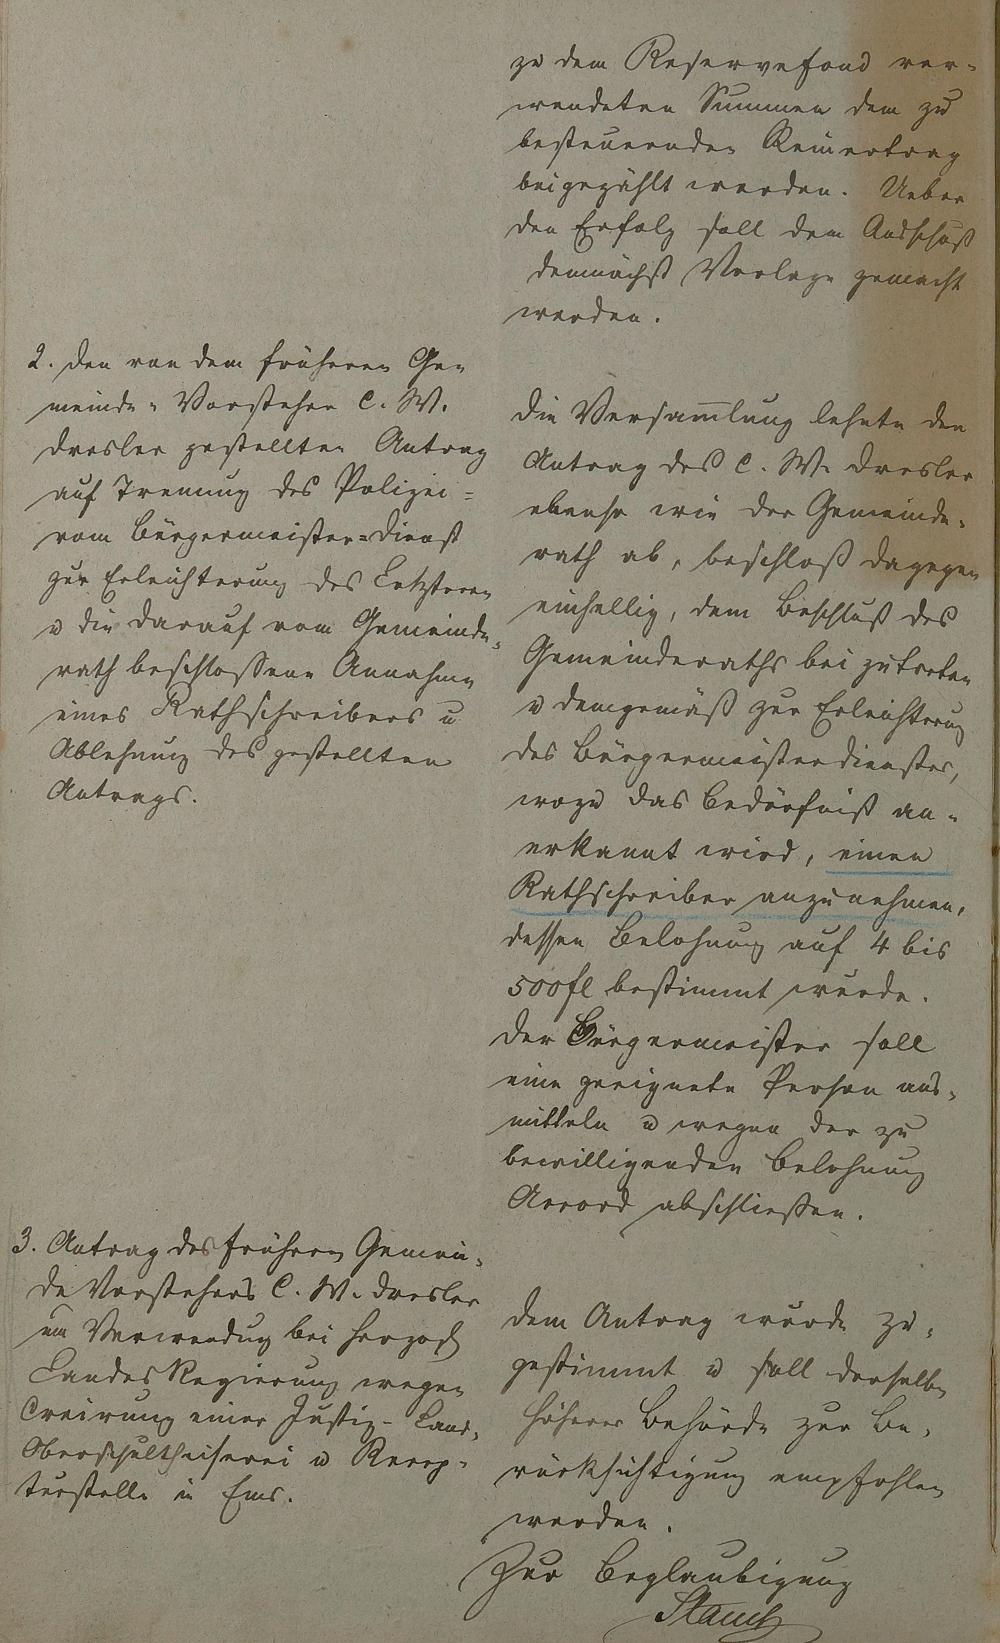 zu dem Reservefond ver-
wendeten Summen dem zu
besteuernden Reinertrag
beigezählt werden. Ueber
den Erfolg soll dem Ausschuß
demnächst Vorlage gemacht
werden.
2. Den von dem früheren Ge-
meinde-Vorsteher C. W.
Dresler gestellten Antrag
auf Trennung des Polizei-
vom Bürgermeister-Dienst
zur Erleichterung des Letzteren
u die darauf vom Gemeinde-
rath beschlossene Annahme
eines Rathschreibers u
Ablehnung des gestellten
Antrags.
Die Versam̅lung lehnte den
Antrag des C. W. Dresler
ebenso wie der Gemeinde-
rath ab, beschloß dagegen
einhellig, dem Beschluß des
Gemeinderaths bei zutreten
u demgemäß zur Erleichterung
des Bürgermeisterdienstes,
wozu das Bedürfniß an-
erkannt wird, einen
Rathschreiber anzunehmen,
dessen Belohnung auf 4 bis
500 fl bestimmt wurde.
Der Bürgermeister soll
eine geeignete Person aus-
mitteln u wegen der zu
bewilligenden Belohnung
Accord abschließen.
3. Antrag des früheren Gemein-
de Vorstehers C. W. Dresler
um Verwendung bei Herzogl
Landes Regierung wegen
Creirung einer Justiz- Land-
Oberschultheiserei u Recep-
turstelle in Ems.
Dem Antrag wurde zu-
gestimmt u soll derselbe
höherer Behörde zur Be-
rücksichtigung empfohlen
werden.
Zur Beglaubigung